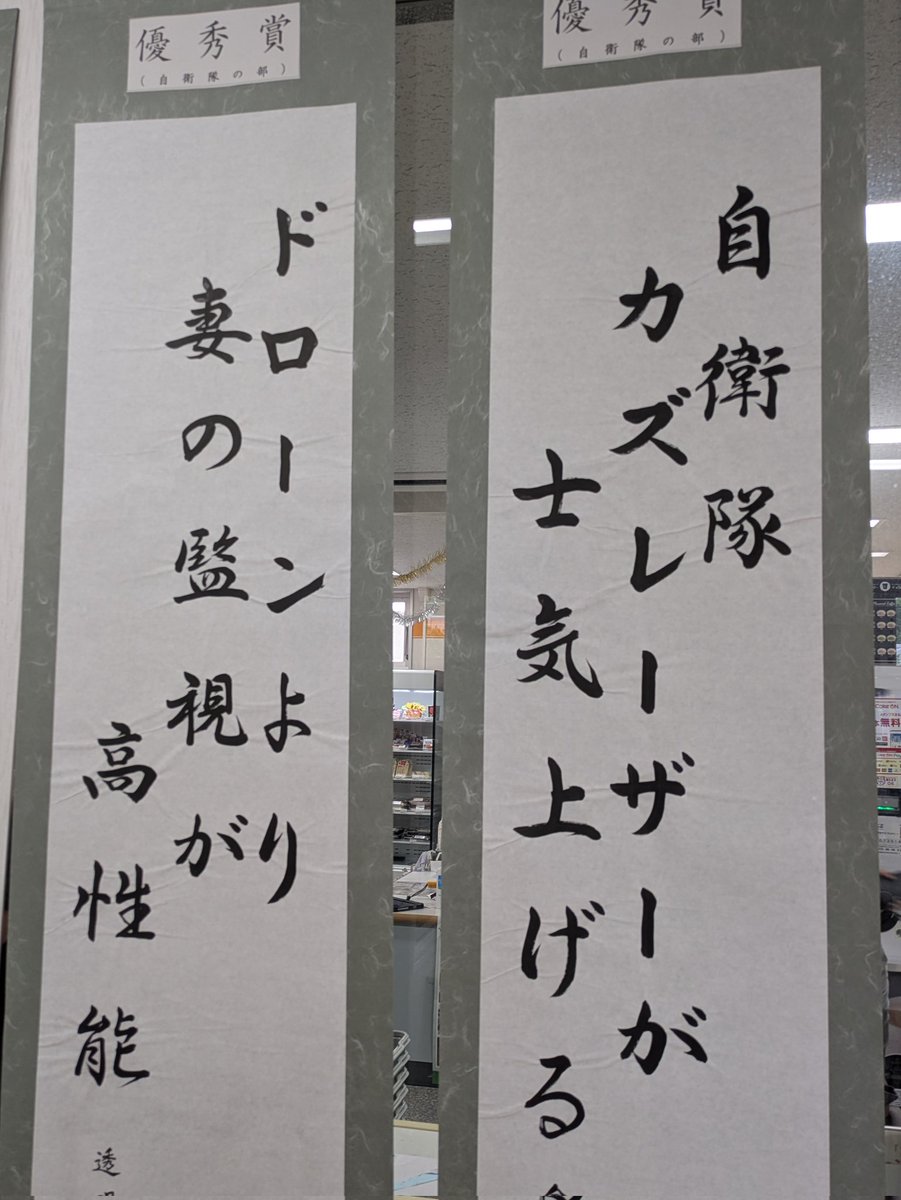 優秀賞
(自衛隊の部)
自衛隊
カズレーザーが
士気上げる
優秀賞
(自衛隊の部)
ドローンより
妻の監視が
高性能
透